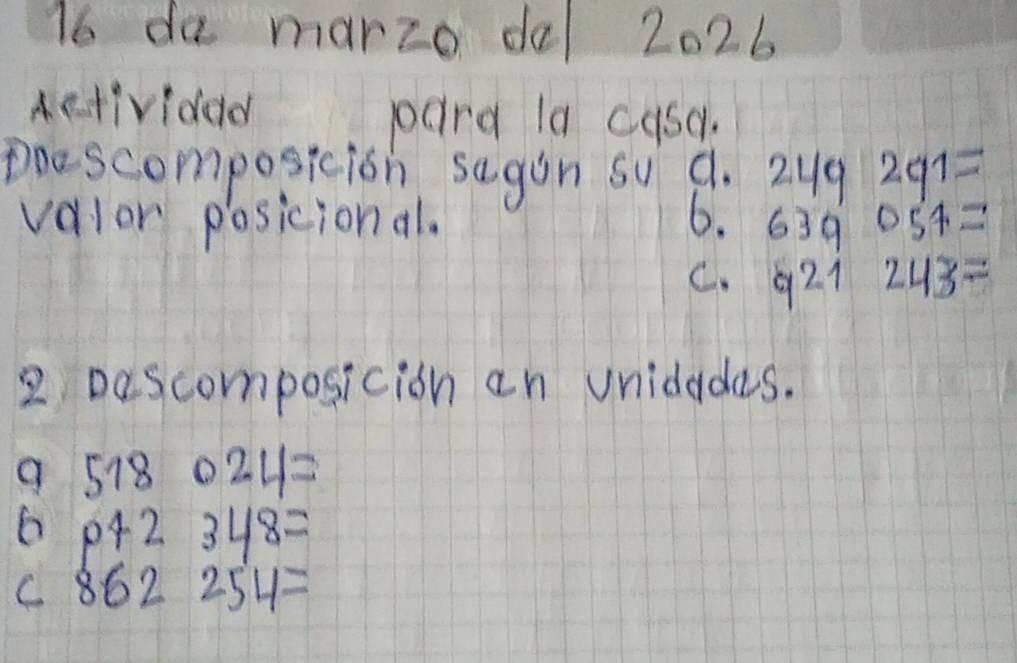 16 de marzo del 2026
Actividad para la casa.
Doescomposición según su a. 249 291=
valor posicional. b. 639 057=
c. 921 243=
2 Descomposición en unidades.
a 518 024=
b 972 348=
c 862 254=